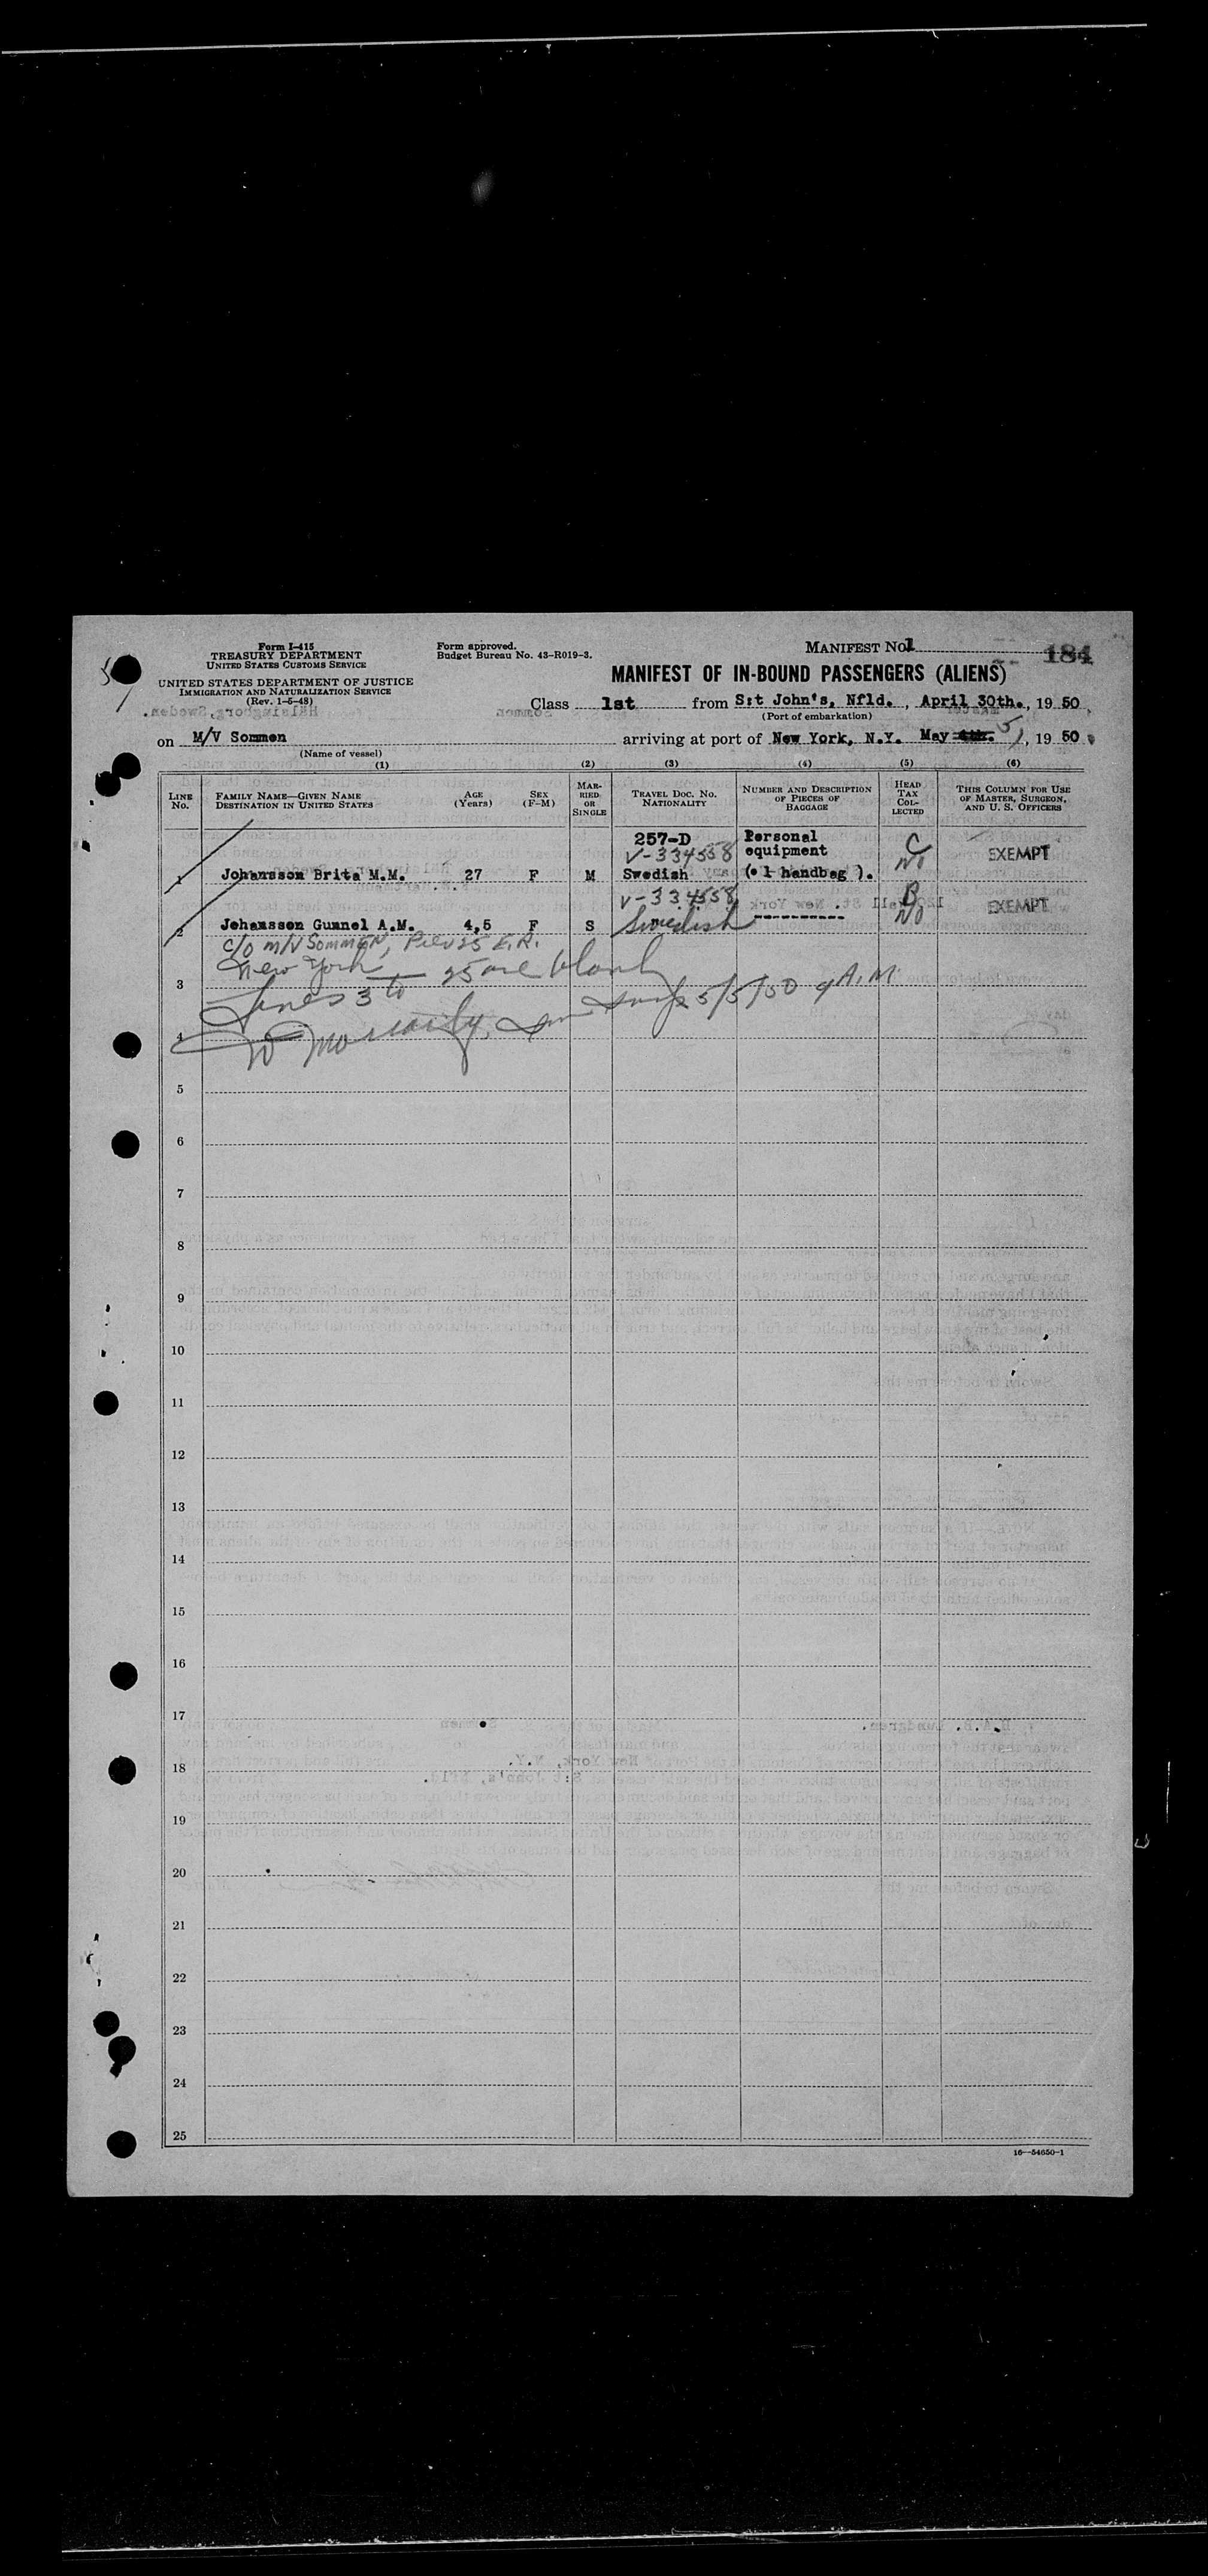 Form I-415
TREASURY DEPARTMENT
UNITED STATES CUSTOMS SERVICE
UNITED STATES DEPARTMENT OF JUSTICE
IMMIGRATION AND NATURALIZATION SERVICE
(Rev. 1-5-48)
Form approved.
Budget Bureau No. 43-R019-3.
MANIFEST No. 1
184
MANIFEST OF IN-BOUND PASSENGERS (ALIENS)
Class 1st from S:t John's, Nfld. , April 30th. , 19 50
(Port of embarkation)
on M/V Sommen arriving at port of New York, N.Y. May 4th. 5, 19 50
(Name of vessel)
(1) (2) (3) (4) (5) (6)
LINE No. FAMILY NAME—GIVEN NAME DESTINATION IN UNITED STATES AGE (Years) SEX (F-M) MARRIED OR SINGLE TRAVEL DOC. No. NATIONALITY NUMBER AND DESCRIPTION OF PIECES OF BAGGAGE HEAD TAX COLLECTED THIS COLUMN FOR USE OF MASTER, SURGEON, AND U. S. OFFICERS
257-D Personal
V-334558 equipment C EXEMPT
1 Johansson Brita M.M. 27 F M Swedish (• 1 handbag ). No
V-334558 B EXEMPT
2 Johansson Gunnel A.M. 4,5 F S Swedish ---------- No
c/o M/V SOMMEN, Pier 25 E.R.
New York
3 Lines 3 to 25 are blank
4 Moriarity, 5/5/50 9 A.M.
5
6
7
8
9
10
11
12
13
14
15
16
17
18
19
20
21
22
23
24
25
16—54650-1